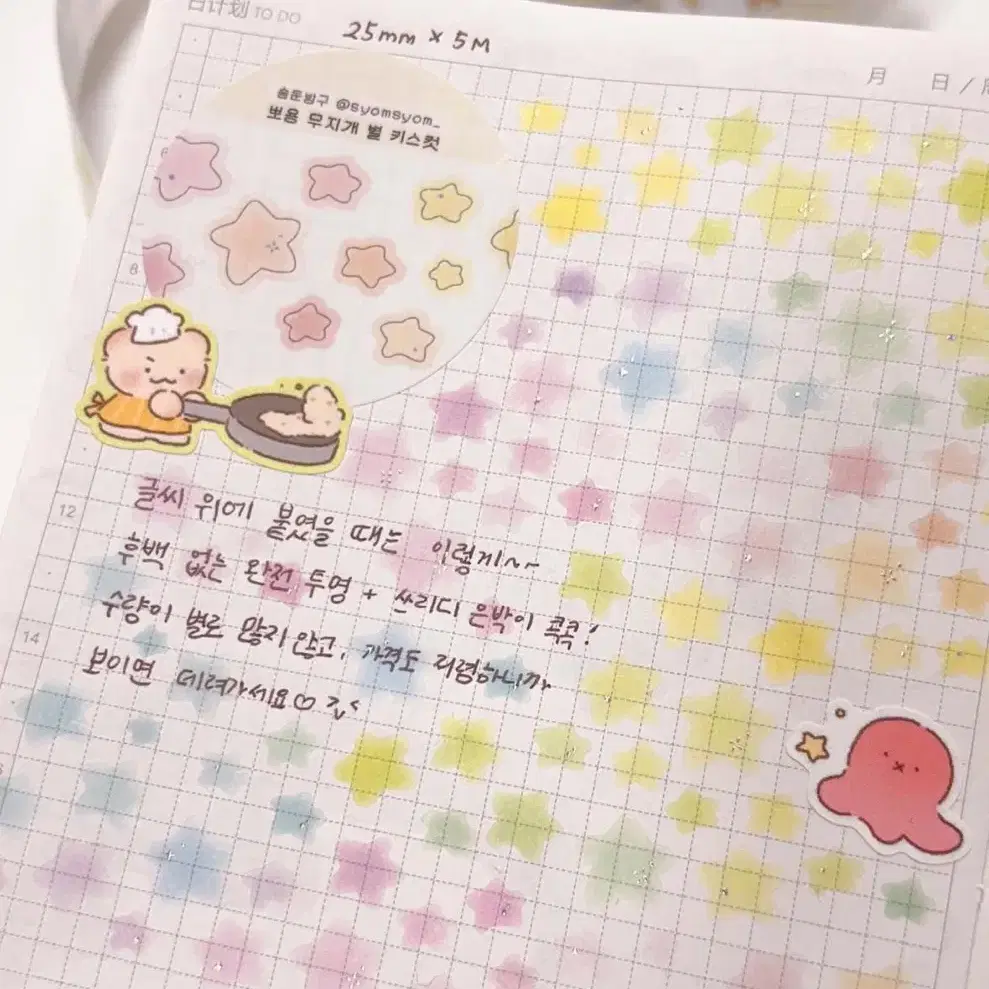 日计划 TO DO
25mm × 5M
月 日 /
숌둔방구 @syomsyom_
뽀용 무지개 별 키스컷
8
12
글씨 위에 붙였을 때는 이렇게~~
후백 없는 완전 투명 + 쓰리디 은박이 콕콕!
수량이 별로 많지 않고, 가격도 저렴하니까
14
보이면 데려가세요♡